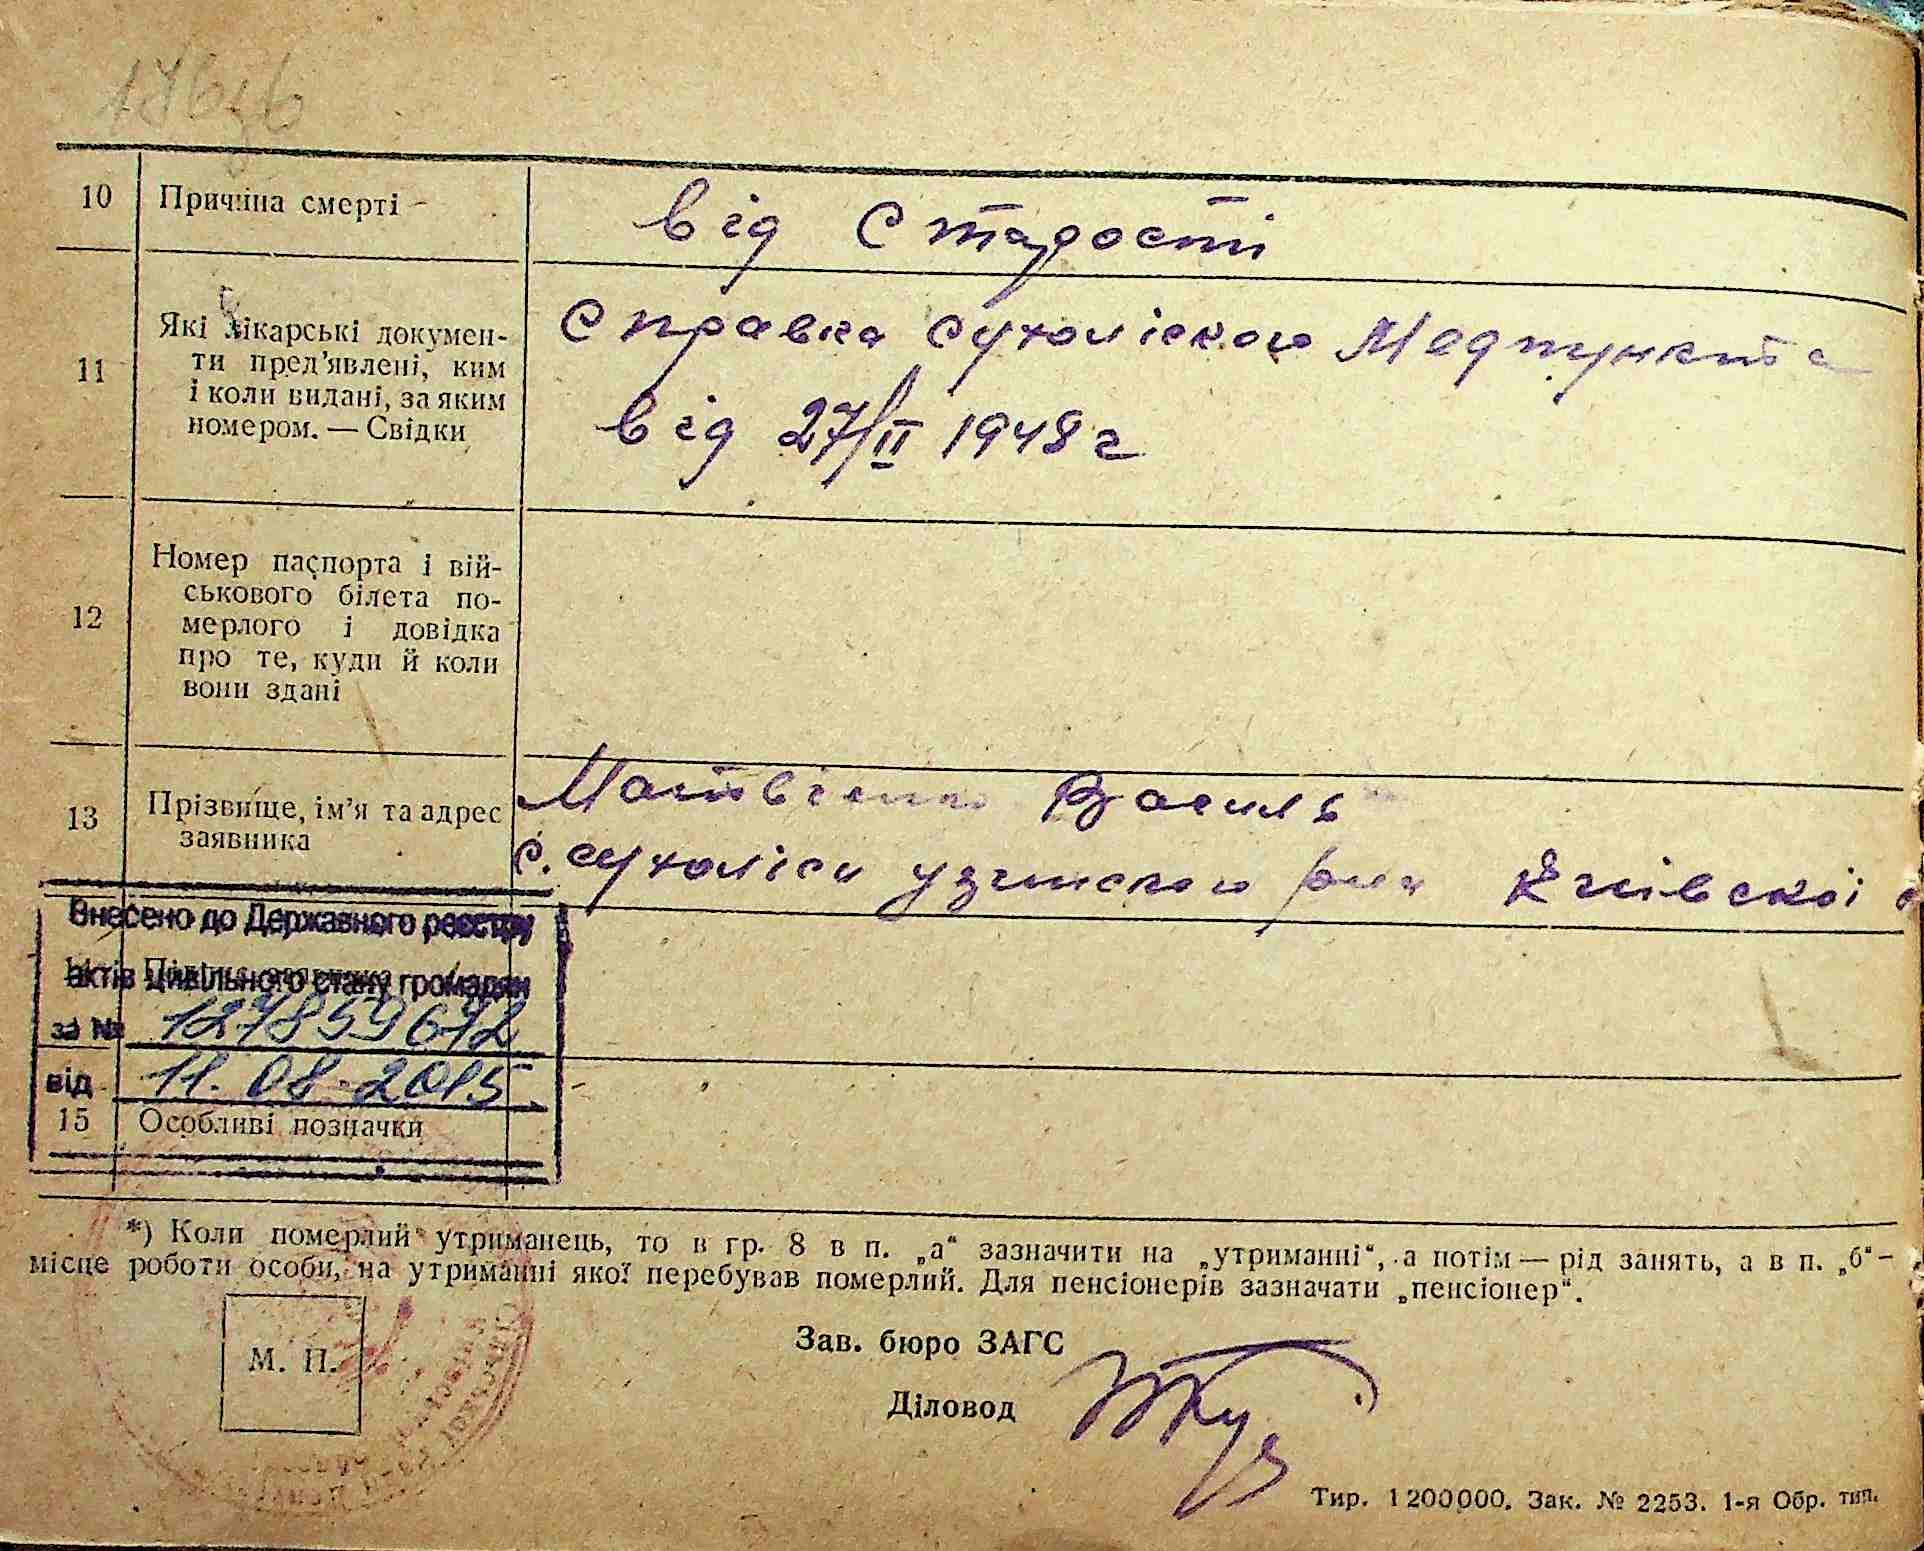 10 Причина смерті від Старості
11 Які лікарські докумен-
ти пред'явлені, ким
і коли видані, за яким
номером. — Свідки
Справка сухоліского Медпункта
від 27/II 1948 г
12 Номер паспорта і вій-
ськового білета по-
мерлого і довідка
про те, куди й коли
вони здані
13 Прізвище, ім'я та адрес
заявника
Матвієнко Василь
с. сухоліси узинского р-на Київскої
Внесено до Державного реєстру
актів цивільного стану громадян
за № 127859672
від 11.08.2015
15 Особливі позначки
*) Коли померлий утриманець, то в гр. 8 в п. „а“ зазначити на „утриманні“, а потім — рід занять, а в п. „б“ —
місце роботи особи, на утриманні якої перебував померлий. Для пенсіонерів зазначати „пенсіонер“.
М. П.
Зав. бюро ЗАГС
Діловод
Тир. 1200000. Зак. № 2253. 1-я Обр. тип.